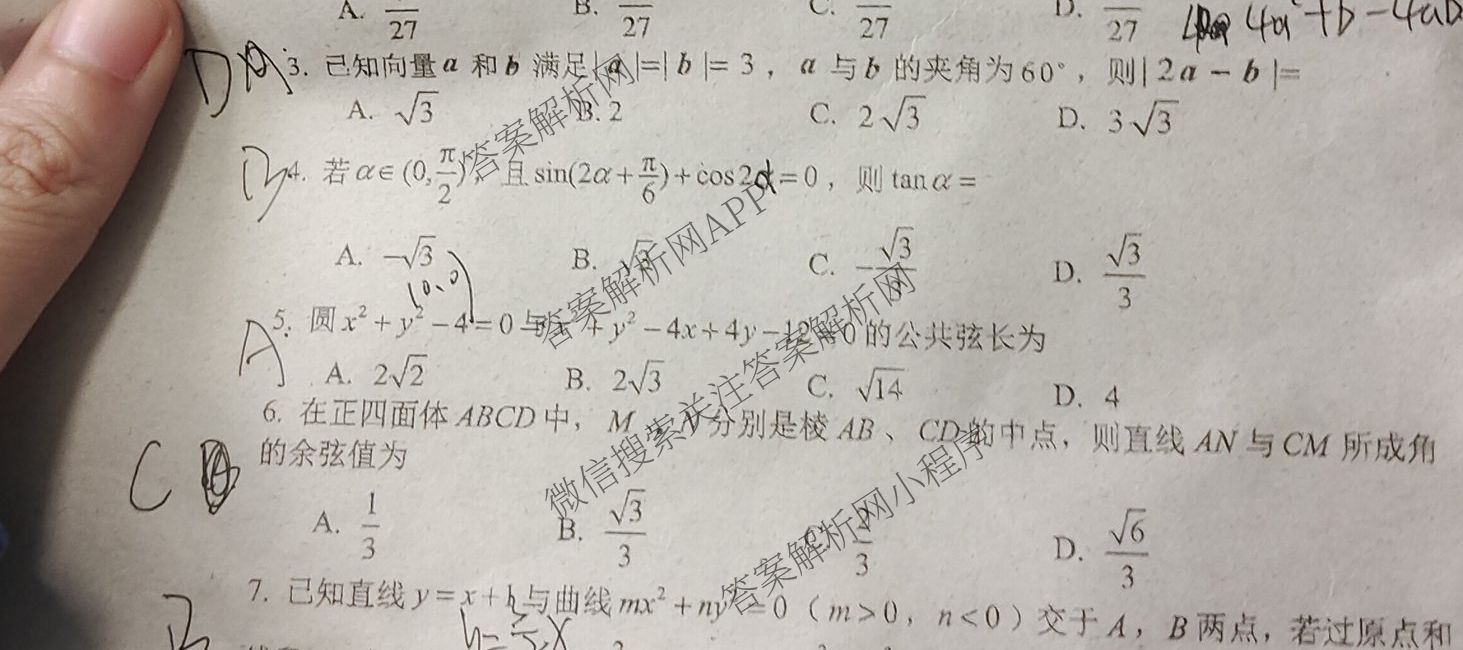 A. 27 B. 27 C. 27 D. 27 4a²+b-4ab
D 3. 已知向量a和b满足|a|=|b|=3，a与b的夹角为60°，则|2a-b|=
A. √3 B. 2 C. 2√3 D. 3√3
B 4. 若α∈(0,π/2)，且sin(2α+π/6)+cos2α=0，则tanα=
A. -√3 B. √3 C. -√3 D. √3/3
(0,0)
A 5. 圆x²+y²-4=0与 +y²-4x+4y-12=0的公共弦长为
A. 2√2 B. 2√3 C. √14 D. 4
6. 在正四面体ABCD中，M、N分别是棱AB、CD的中点，则直线AN与CM所成角
C 的余弦值为
A. 1/3 B. √3/3 C. 3 D. √6/3
7. 已知直线y=x+ 与曲线mx²+ny =0（m>0，n<0）交于A，B两点，若过原点和
B
答案解析网
答案解析网APP
微信搜索关注答案解析网
答案解析网小程序